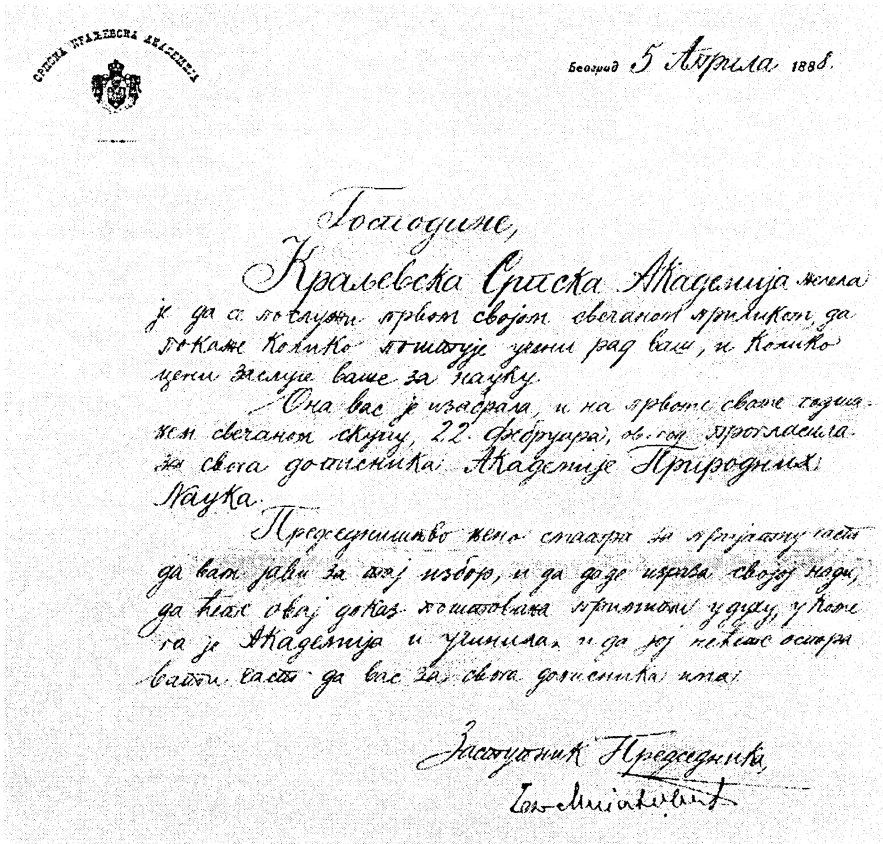 СРПСКА КРАЉЕВСКА АКАДЕМИЈА
Београд 5 Априла 1888.
Господине,
Краљевска Српска Академија желела
је да се послужи првом својом свечаном приликом, да
покаже колико поштује учени рад ваш, и колико
цени заслуге ваше за науку.
Она вас је изабрала, и на првоме своме годиш-
њем свечаном скупу, 22. фебруара, ов. год. прогласила
за свога дописника Академије Природних
Наука.
Председништво њено сматра за пријатну част
да вам јави за тај избор, и да даде израза својој нади,
да ћете овај доказ поштовања примити у духу, у коме
га је Академија и учинила, и да јој нећете оспора
вати част да вас за свога дописника има.
Заступник Председника,